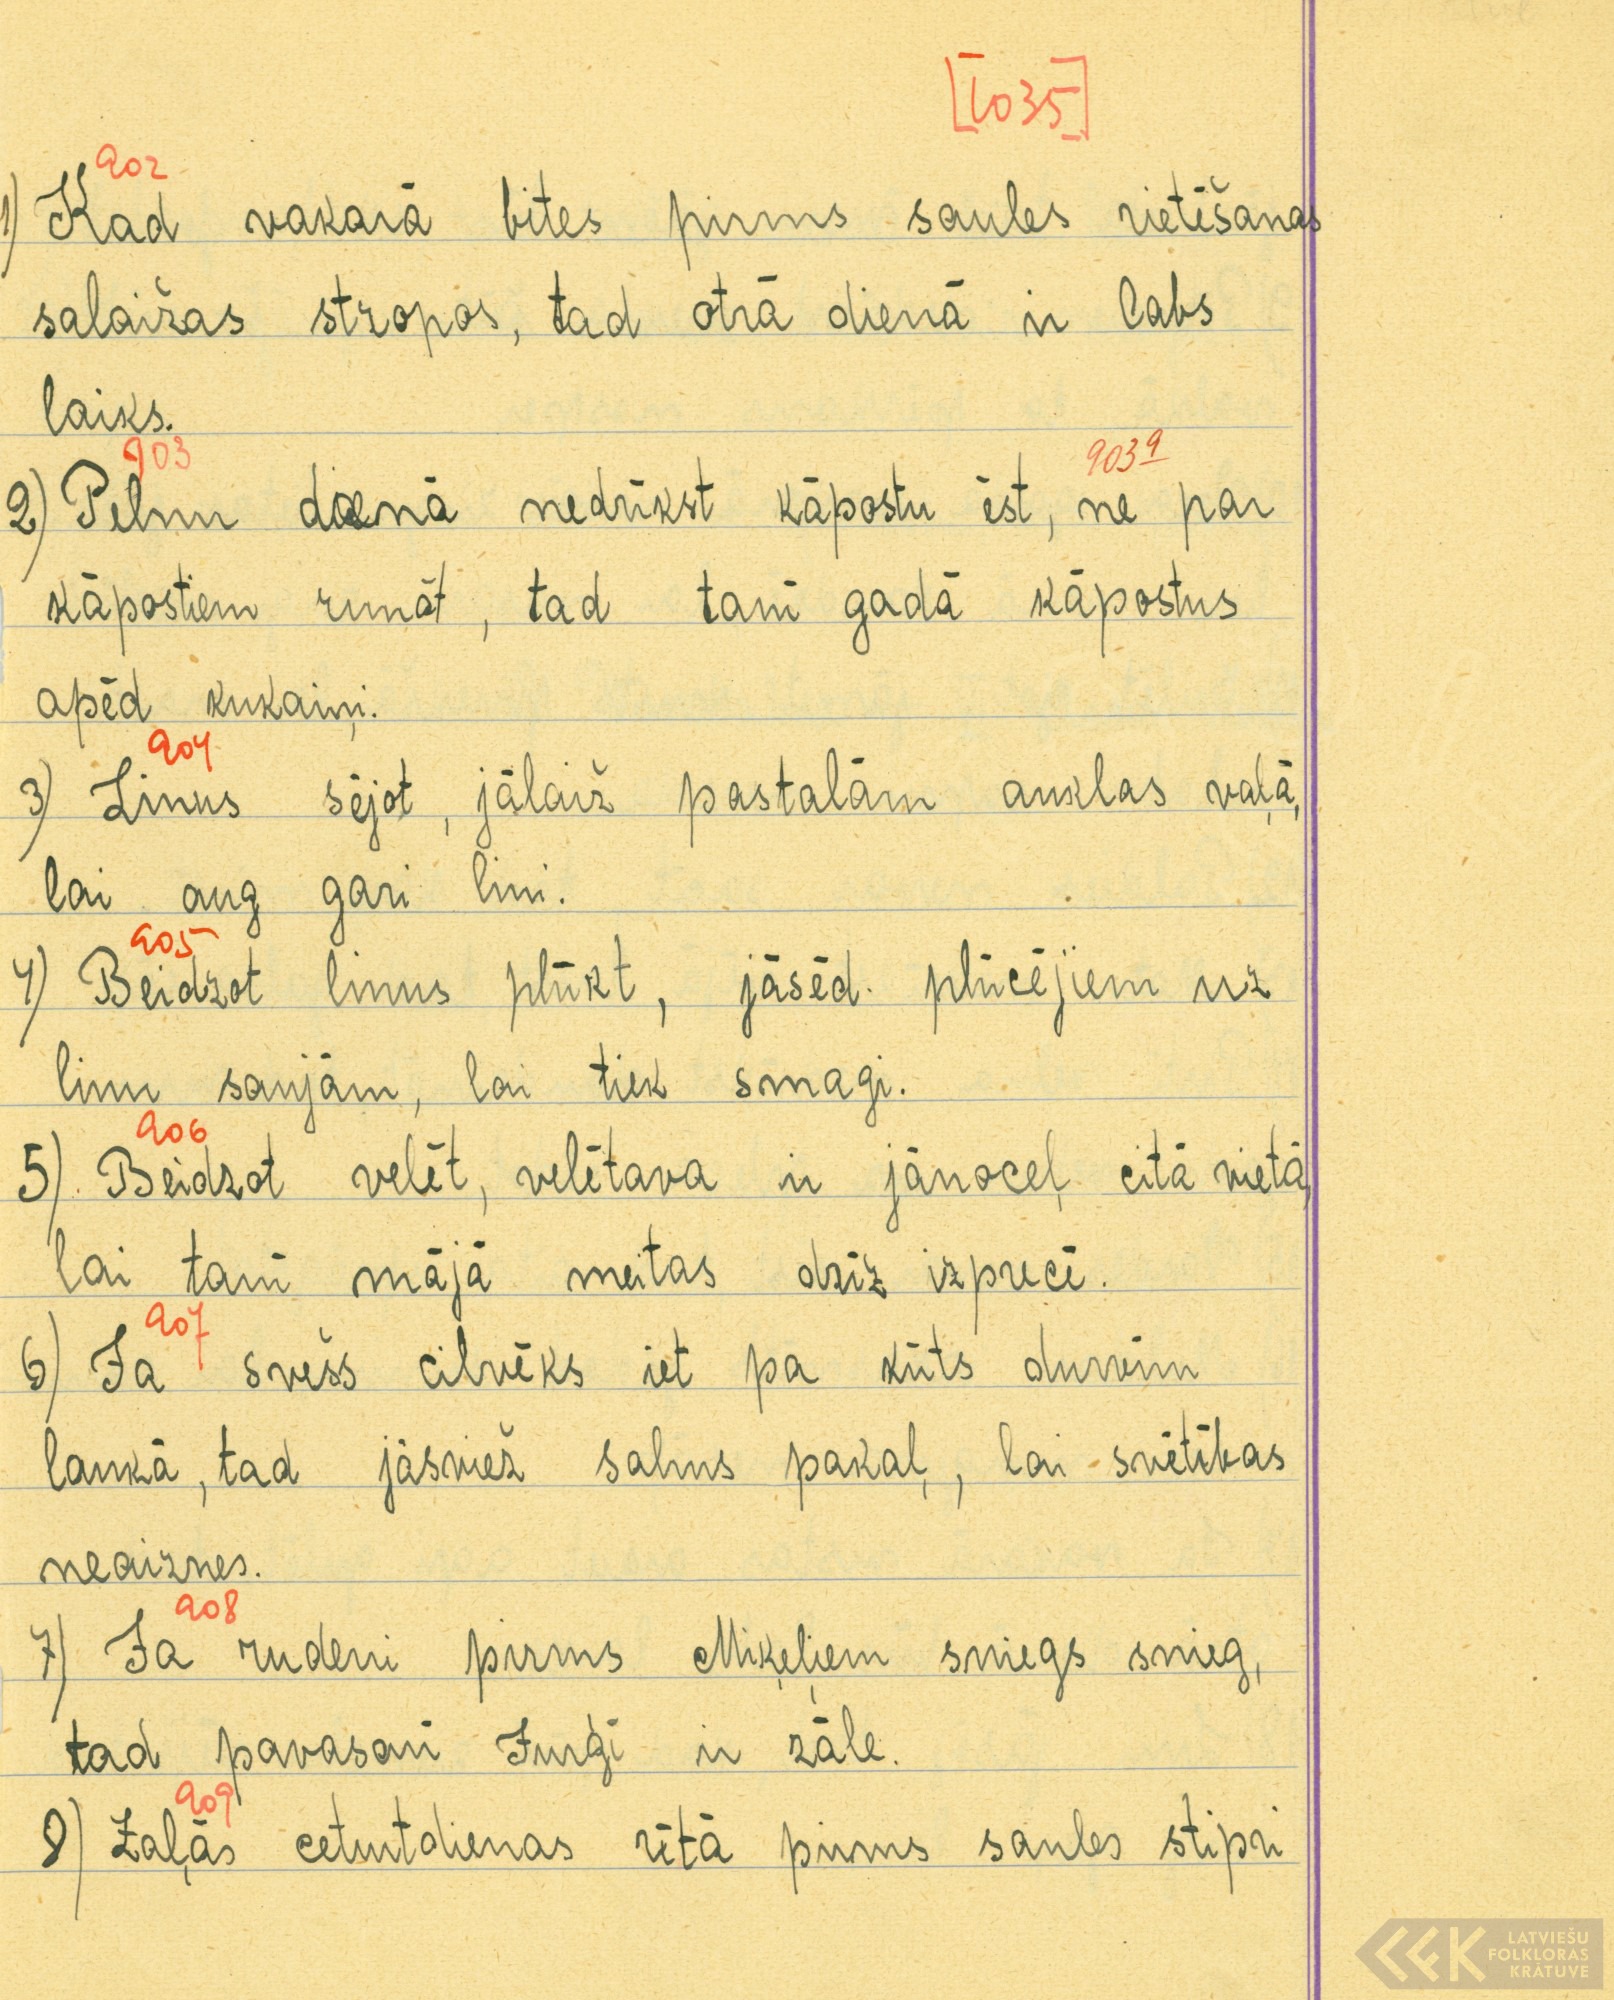 [1035]
902
1) Kad vakarā bites pirms saules rietēšanas
salaižas stropos, tad otrā dienā ir labs
laiks.
903 903a
2) Pelnu dienā nedrīkst kāpostu ēst, ne par
kāpostiem runāt, tad tanī gadā kāpostus
apēd kukaiņi.
904
3) Linus sējot, jālaiž pastalām auklas vaļā,
lai aug gari lini.
905
4) Beidzot linus plūkt, jāsēd plūcējiem uz
linu saujām, lai tiek smagi.
906
5) Beidzot velēt, velētava ir jānoceļ citā vietā,
lai tanī mājā meitas drīz izprecē.
907
6) Ja svešs cilvēks iet pa kūts durvīm
laukā, tad jāsviež salms pakaļ, lai svētības
neaiznes.
908
7) Ja rudenī pirms Miķeļiem sniegs snieg,
tad pavasarī Jurģī ir zāle.
909
8) Zaļās ceturtdienas rītā pirms saules stipri
LATVIEŠU
FOLKLORAS
KRĀTUVE